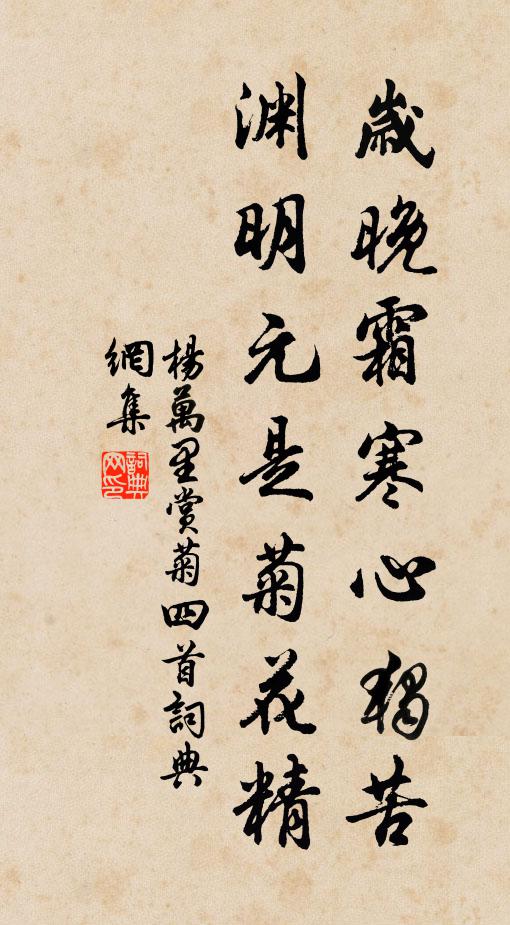 歲晚霜寒心獨苦
淵明元是菊花精
楊萬里賞菊四首詞典
網集
詞典網印